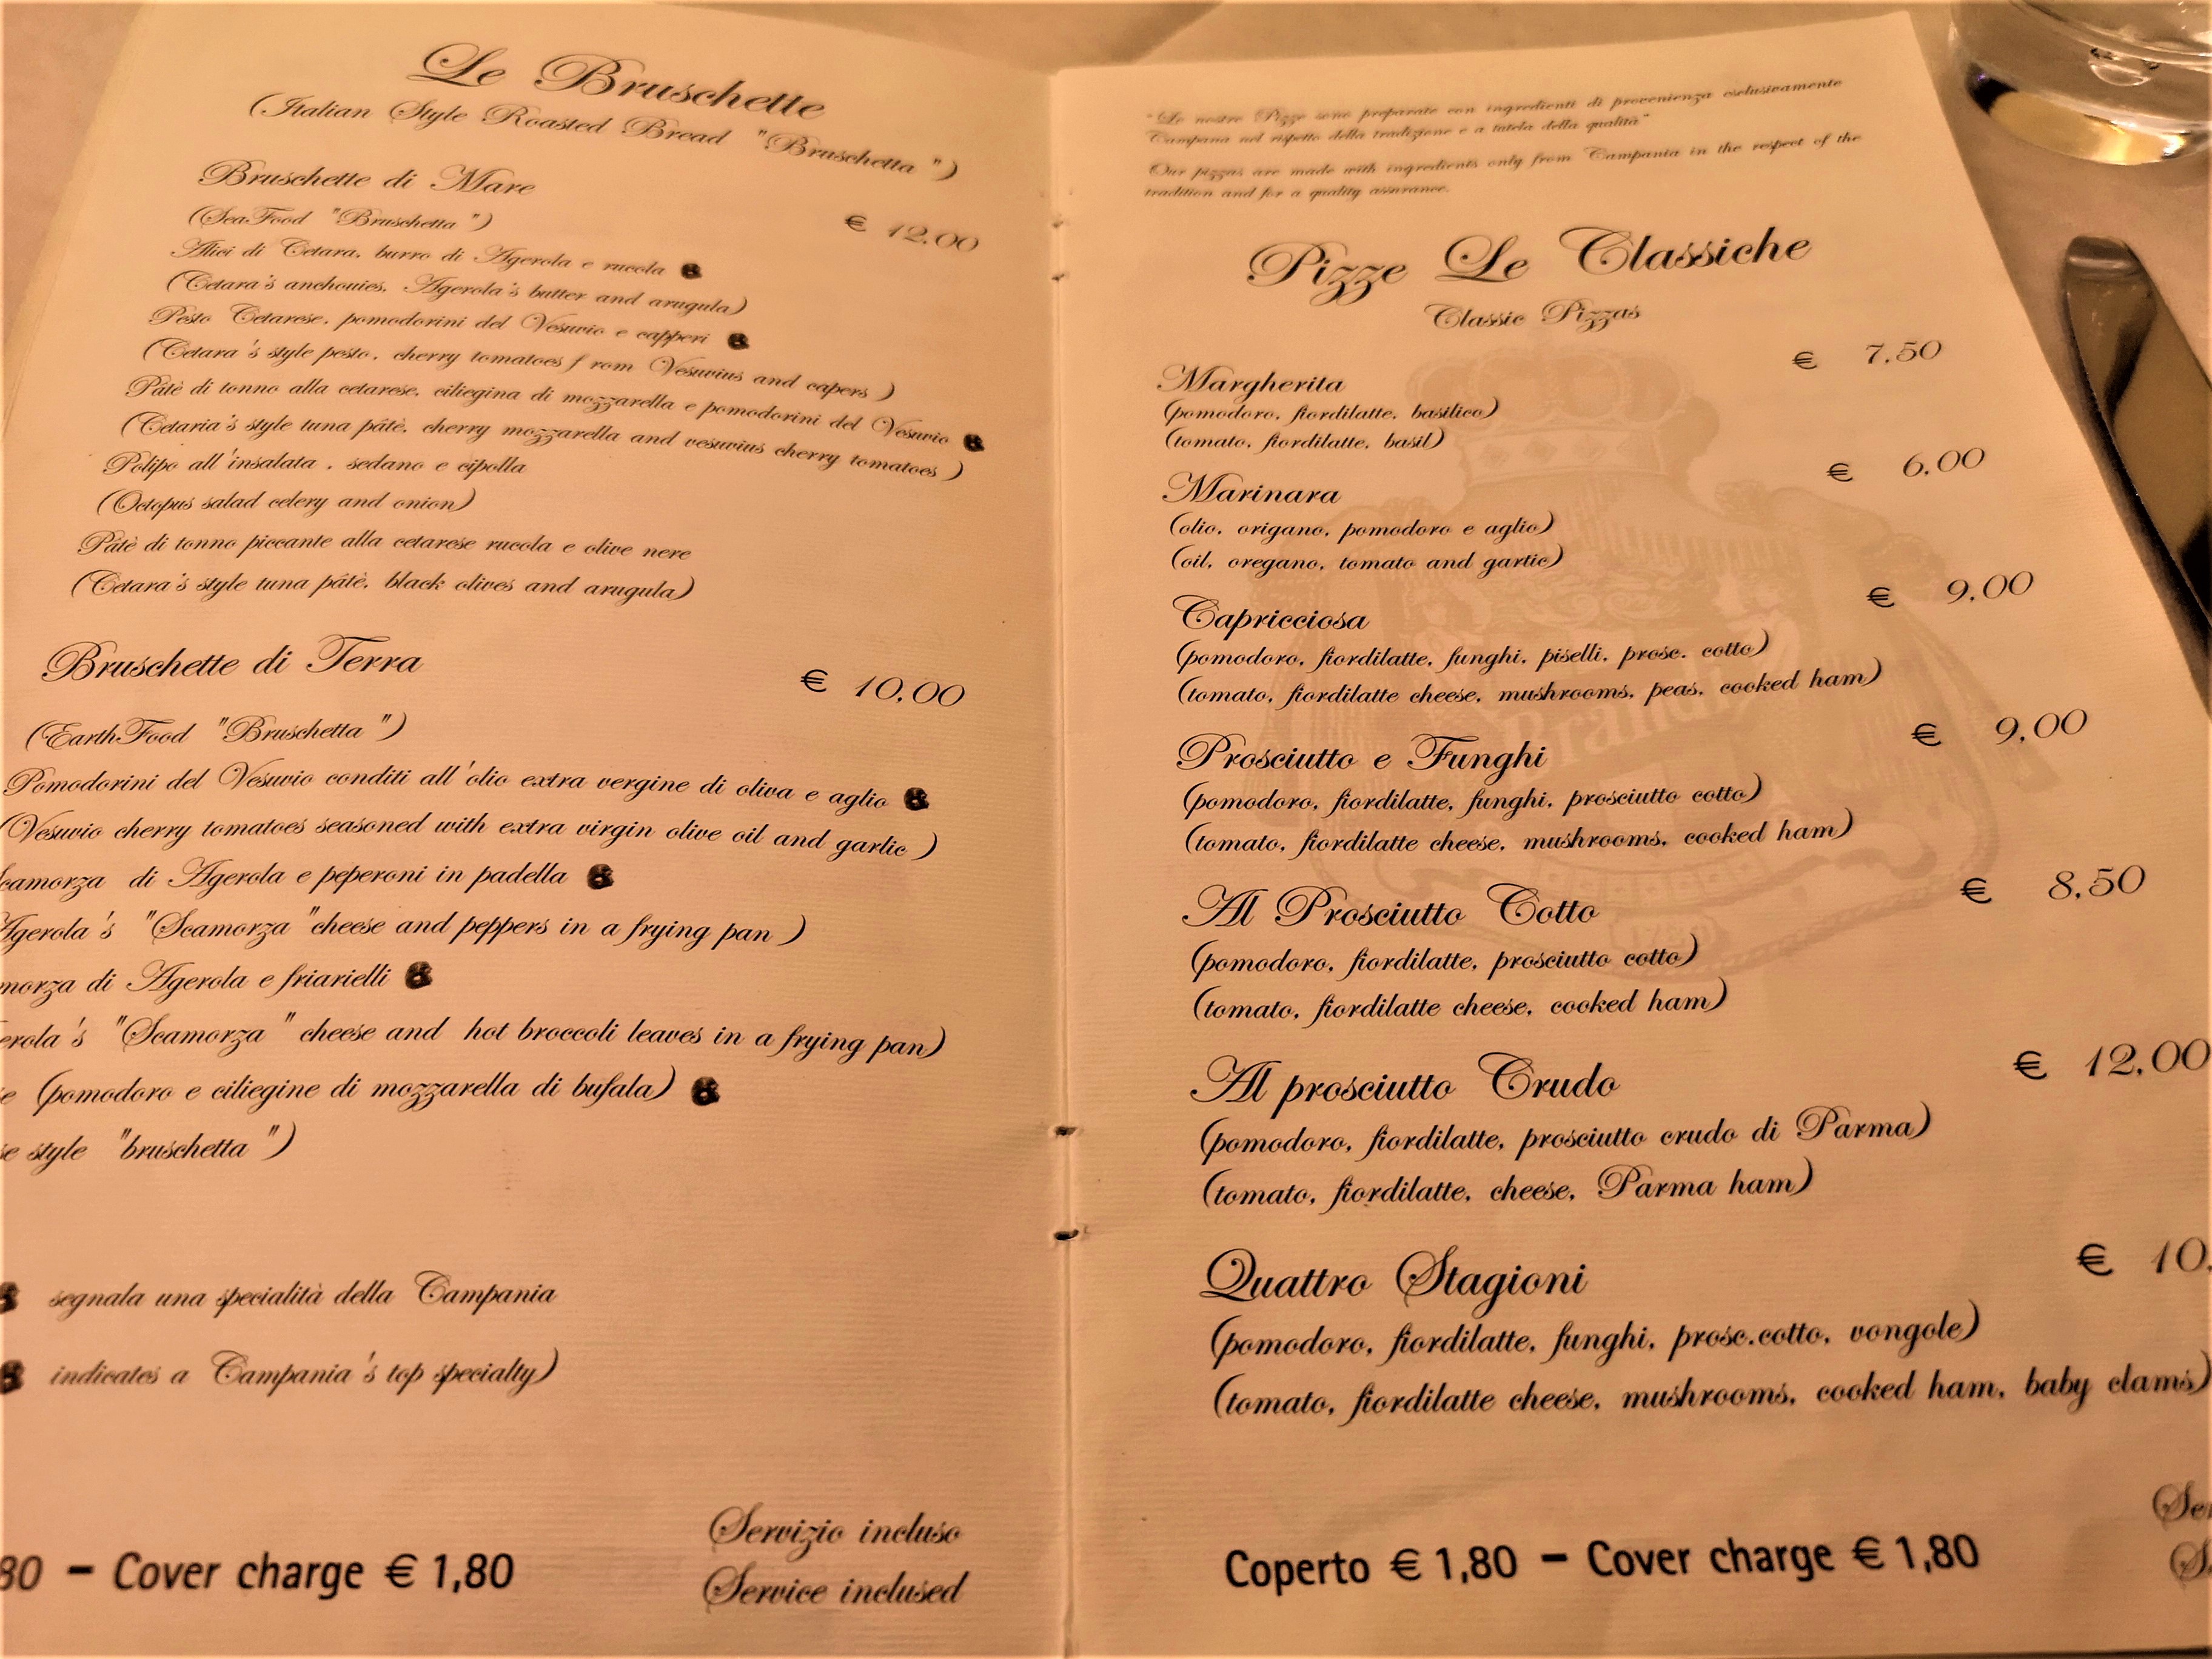 Le Bruschette
(Italian Style Roasted Bread "Bruschetta")
Bruschette di Mare
(SeaFood "Bruschetta")
€ 12,00
Alici di Cetara, burro di Agerola e rucola
(Cetara's anchouies, Agerola's butter and arugula)
Pesto Cetarese, pomodorini del Vesuvio e capperi
(Cetara's style pesto, cherry tomatoes from Vesuvius and capers)
Pâtè di tonno alla cetarese, ciliegina di mozzarella e pomodorini del Vesuvio
(Cetaria's style tuna pâtè, cherry mozzarella and vesuvius cherry tomatoes)
Polipo all'insalata, sedano e cipolla
(Octopus salad celery and onion)
Pâtè di tonno piccante alla cetarese rucola e olive nere
(Cetara's style tuna pâtè, black olives and arugula)
Bruschette di Terra
€ 10,00
(EarthFood "Bruschetta")
Pomodorini del Vesuvio conditi all'olio extra vergine di oliva e aglio
(Vesuvio cherry tomatoes seasoned with extra virgin olive oil and garlic)
camorza di Agerola e peperoni in padella
Agerola's "Scamorza" cheese and peppers in a frying pan)
morza di Agerola e friarielli
erola's "Scamorza" cheese and hot broccoli leaves in a frying pan)
e (pomodoro e ciliegine di mozzarella di bufala)
se style "bruschetta")
segnala una specialità della Campania
indicates a Campania's top specialty)
Servizio incluso
80 – Cover charge € 1,80
Service inclused
"Le nostre Pizze sono preparate con ingredienti di provenienza esclusivamente
Campana nel rispetto della tradizione e a tutela della qualità"
Our pizzas are made with ingredients only from Campania in the respect of the
tradition and for a quality assurance.
Pizze Le Classiche
Classic Pizzas
Margherita € 7,50
(pomodoro, fiordilatte, basilico)
(tomato, fiordilatte, basil)
Marinara € 6,00
(olio, origano, pomodoro e aglio)
(oil, oregano, tomato and garlic)
Capricciosa € 9,00
(pomodoro, fiordilatte, funghi, piselli, prosc. cotto)
(tomato, fiordilatte cheese, mushrooms, peas, cooked ham)
Prosciutto e Funghi € 9,00
(pomodoro, fiordilatte, funghi, prosciutto cotto)
(tomato, fiordilatte cheese, mushrooms, cooked ham)
Al Prosciutto Cotto € 8,50
(pomodoro, fiordilatte, prosciutto cotto)
(tomato, fiordilatte cheese, cooked ham)
Al prosciutto Crudo € 12,00
(pomodoro, fiordilatte, prosciutto crudo di Parma)
(tomato, fiordilatte, cheese, Parma ham)
Quattro Stagioni € 10,
(pomodoro, fiordilatte, funghi, prosc.cotto, vongole)
(tomato, fiordilatte cheese, mushrooms, cooked ham, baby clams)
Coperto € 1,80 – Cover charge € 1,80